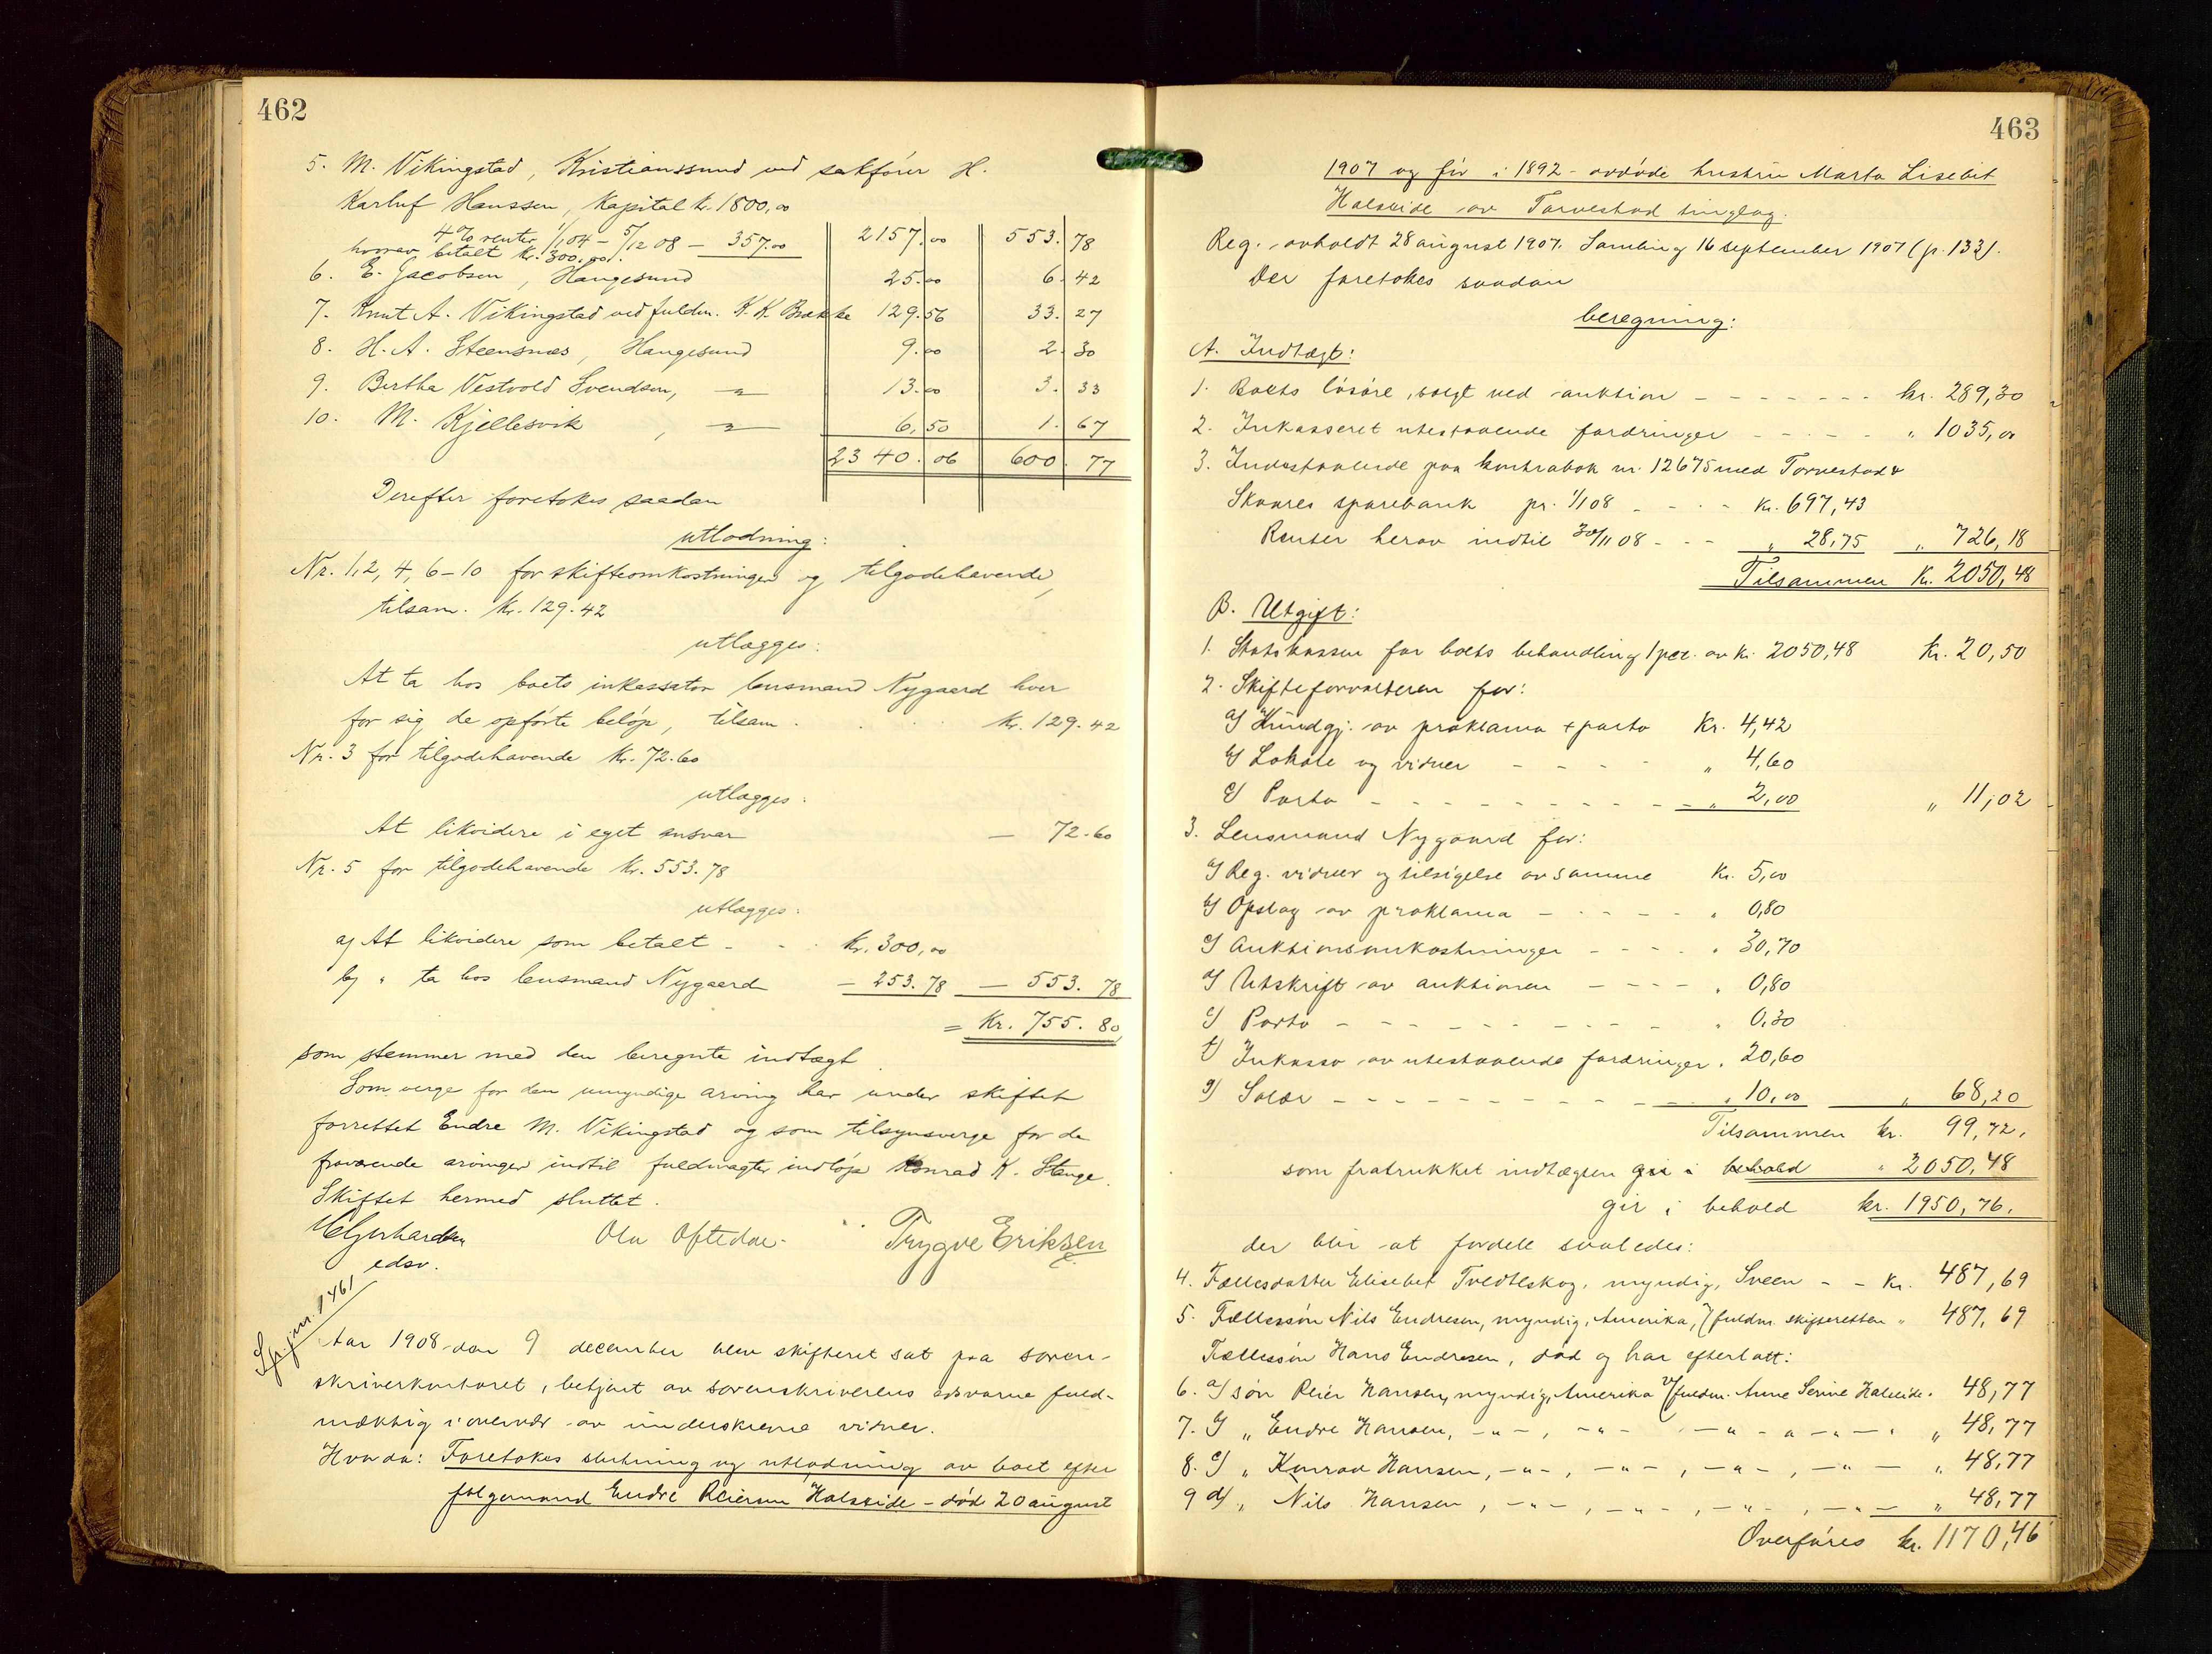 462
5. M. Vikingstad, Kristianssund ved sakfører H.
Karluf Hanssen, Kapital kr. 1800,00
4% renter 1/1 04 – 5/12 08 – 357.00 2157.00 553.78
hvorav betalt kr. 300.00.
6. E. Jacobsen, Haugesund 25.00 6.42
7. Knut A. Vikingstad ved fuldm. K. K. Brekke 129.56 33.27
8. H. A. Steensnæs, Haugesund 9.00 2.30
9. Bertha Vestvold Svendsen, –"– 13.00 3.33
10. M. Kjellesvik, –"– 6,50 1.67
2340.06 600.77
Derefter foretokes saadan
utlodning:
Nr. 1, 2, 4, 6–10 for skifteomkostninger og tilgodehavende,
tilsam. kr. 129.42
utlægges:
At ta hos boets inkassator lensmand Nygaard hver
for sig de opførte beløp, tilsam. kr. 129.42
Nr. 3 for tilgodehavende kr. 72.60
utlægges:
At likvidere i eget ansvar — 72.60
Nr. 5 for tilgodehavende kr. 553.78
utlægges:
a) At likvidere som betalt - - kr. 300,00
b) " ta hos lensmand Nygaard — 253.78 — 553.78
= Kr. 755.80
som stemmer med den beregnte indtægt.
Som verge for den umyndige arving har under skiftet
forrettet Endre M. Vikingstad og som tilsynsverge for de
fraværende arvinger indtil fuldmagter indløp Konrad K. Stange.
Skiftet hermed sluttet.
Ola Oftedal. Trygve Eriksen
edsv.
Aar 1908 den 9 december blev skifteret sat paa soren-
skriverkontoret, betjent av sorenskriverens edsvorne fuld-
mæktig i overvær av underskrevne vidner.
Hvorda: Foretokes slutning og utlodning av boet efter
følgemand Endre Reiersen Halseide – død 20 august
463
1907 og før i 1892 avdøde hustru Marta Lisebet
Halseide av Torvestad tinglag.
Reg. avholdt 28 august 1907. Samling 16 september 1907 (p. 133).
Der foretokes saadan
beregning:
A. Indtægt:
1. Boets løsøre, solgt ved auktion - - - - - - - kr. 289,30
2. Inkasseret utestaaende fordringer - - - - - " 1035,00
3. Indestaaende paa kontrabok nr. 12675 med Torvestad &
Skaares sparebank pr. 1/1 08 - - - - kr. 697,43
Renter herav indtil 30/11 08 - - - " 28,75 " 726,18
Tilsammen Kr. 2050,48
B. Utgift:
1. Statskassen for boets behandling 1 pct. av kr. 2050,48 Kr. 20,50
2. Skifteforvalteren for:
a) Kundgj. av proklama + porto Kr. 4,42
b) Lokale og vidner - - - - " 4,60
c) Porto - - - - - - - - - - " 2,00 " 11,02
3. Lensmand Nygaard for:
a) Reg. vidner og tilsigelse av samme Kr. 5,00
b) Opslag av proklama - - - - - " 0,80
c) Auktionsomkostninger - - - - " 30,70
d) Utskrift av auktionen - - - - " 0,80
e) Porto - - - - - - - - - " 0,30
f) Inkasso av utestaaende fordringer " 20,60
g) Salær - - - - - - - - - - " 10,00 " 68,20
Tilsammen kr. 99,72.
som fratrukket indtægten gir i behold " 2050,48
gir i behold kr. 1950,76.
der blir at fordele saaledes:
4. Fællesdatter Elisebet Tvedteskog, myndig, Sveen - - kr. 487,69
5. Fællessøn Nils Endresen, myndig, Amerika, v/ fuldm. skifteretten " 487,69
Fællessøn Hans Endresen, død og har efterlatt:
6. a) søn Reier Hansen, myndig, Amerika v/ fuldm. Anne Serine Halseide " 48,77
7. b) " Endre Hansen, -"-, -"- -"- -"- -"- " 48,77
8. c) " Konrad Hansen, -"-, -"-, -"-, -"- " 48,77
9. d) " Nils Hansen, -"-, -"-, -"-, -"- " 48,77
Overføres kr. 1170,46